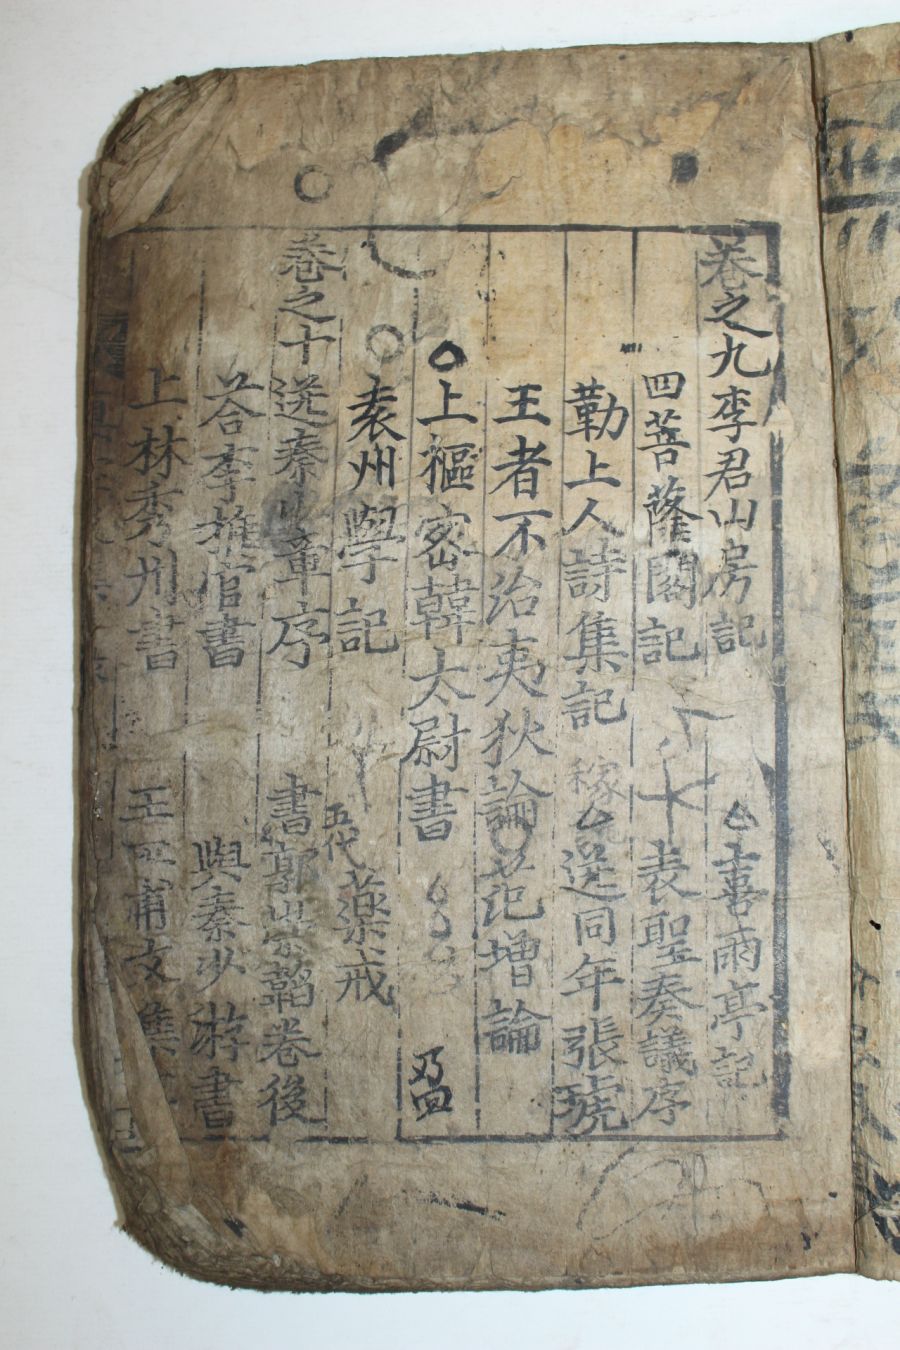 卷之九李君山房記　喜雨亭記
四菩薩閣記　表聖奏議序
勤上人詩集記　送同年張琥
王者不治夷狄論　范增論
上樞密韓太尉書
袁州學記　五代　藥戒
卷之十送秦少章序　書郭崇韜卷後
答李推官書　與秦少游書
上林秀州書　王平甫文集